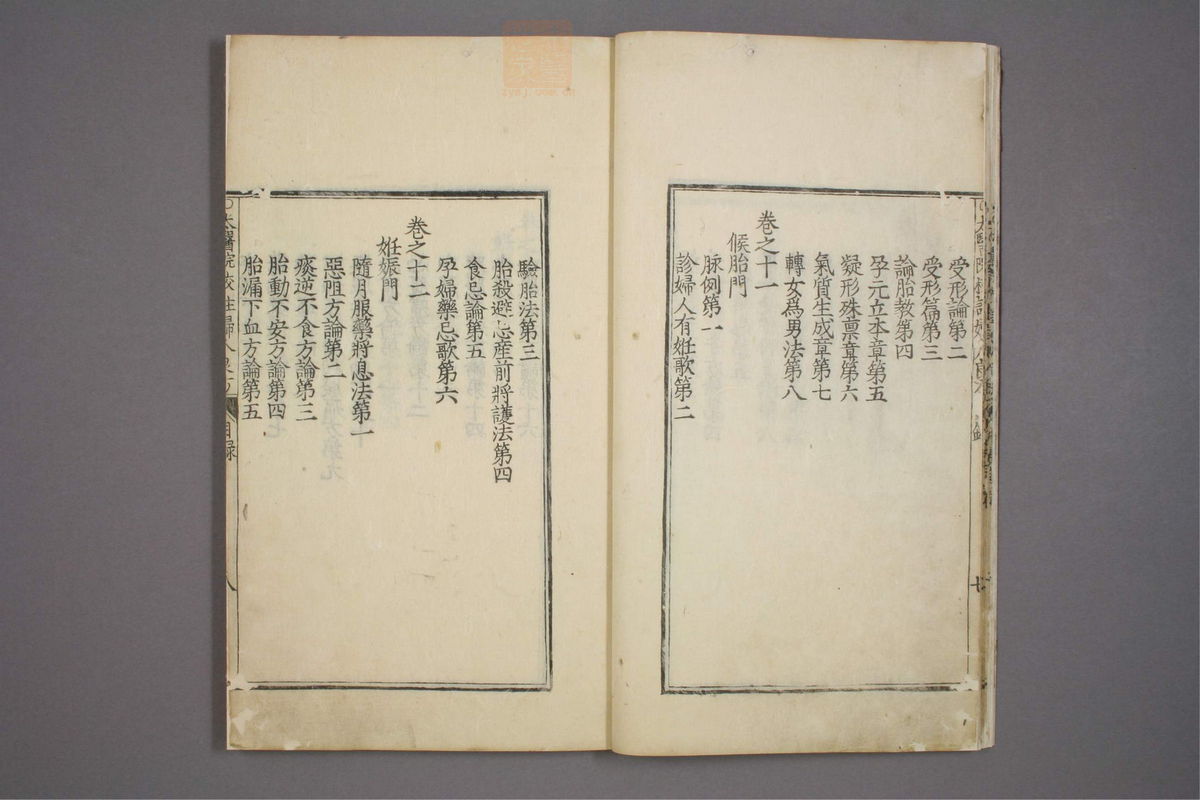 受形論第二
受形篇第三
論胎教第四
孕元立本章第五
凝形殊禀章第六
氣質生成章第七
轉女爲男法第八
卷之十一
候胎門
脉例第一
診婦人有姙歌第二
七
驗胎法第三
胎殺避忌産前將護法第四
食忌論第五
孕婦藥忌歌第六
卷之十二
姙娠門
隨月服藥將息法第一
惡阻方論第二
痰逆不食方論第三
胎動不安方論第四
胎漏下血方論第五
○太醫院校註婦人良方
目録
八